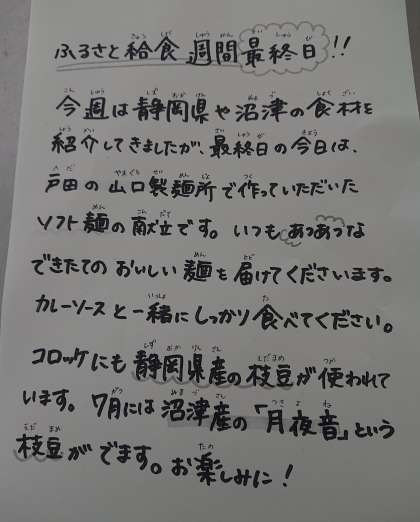 ふるさと給食週間最終日!!
今週は静岡県や沼津の食材を
紹介してきましたが、最終日の今日は、
戸田の山口製麺所で作っていただいた
ソフト麺の献立です。いつもあつあつな
できたてのおいしい麺を届けてくださいます。
カレーソースと一緒にしっかり食べてください。
コロッケにも静岡県産の枝豆が使われて
います。7月には沼津産の「月夜音」という
枝豆がでます。お楽しみに!